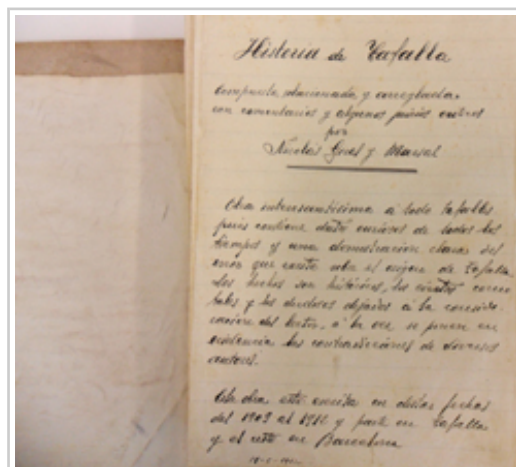 Historia de Tafalla
Compuesta, ordenada y arreglada
con comentarios y algunos juicios
por
Nicolás y
Obra interesantísima á todo tafallés
pues contiene datos curiosos de todos los
tiempos y una demostración clara del
error que existe sobre el origen de Tafalla.
Los hechos son históricos, los
y los dudosos dejados á la conside-
racion del lector, á la vez se ponen en
evidencia las contradicciones de diversos
autores.
Esta obra está escrita en distas fechas
del 1909 al 1912 y parte en Tafalla
y el resto en Barcelona